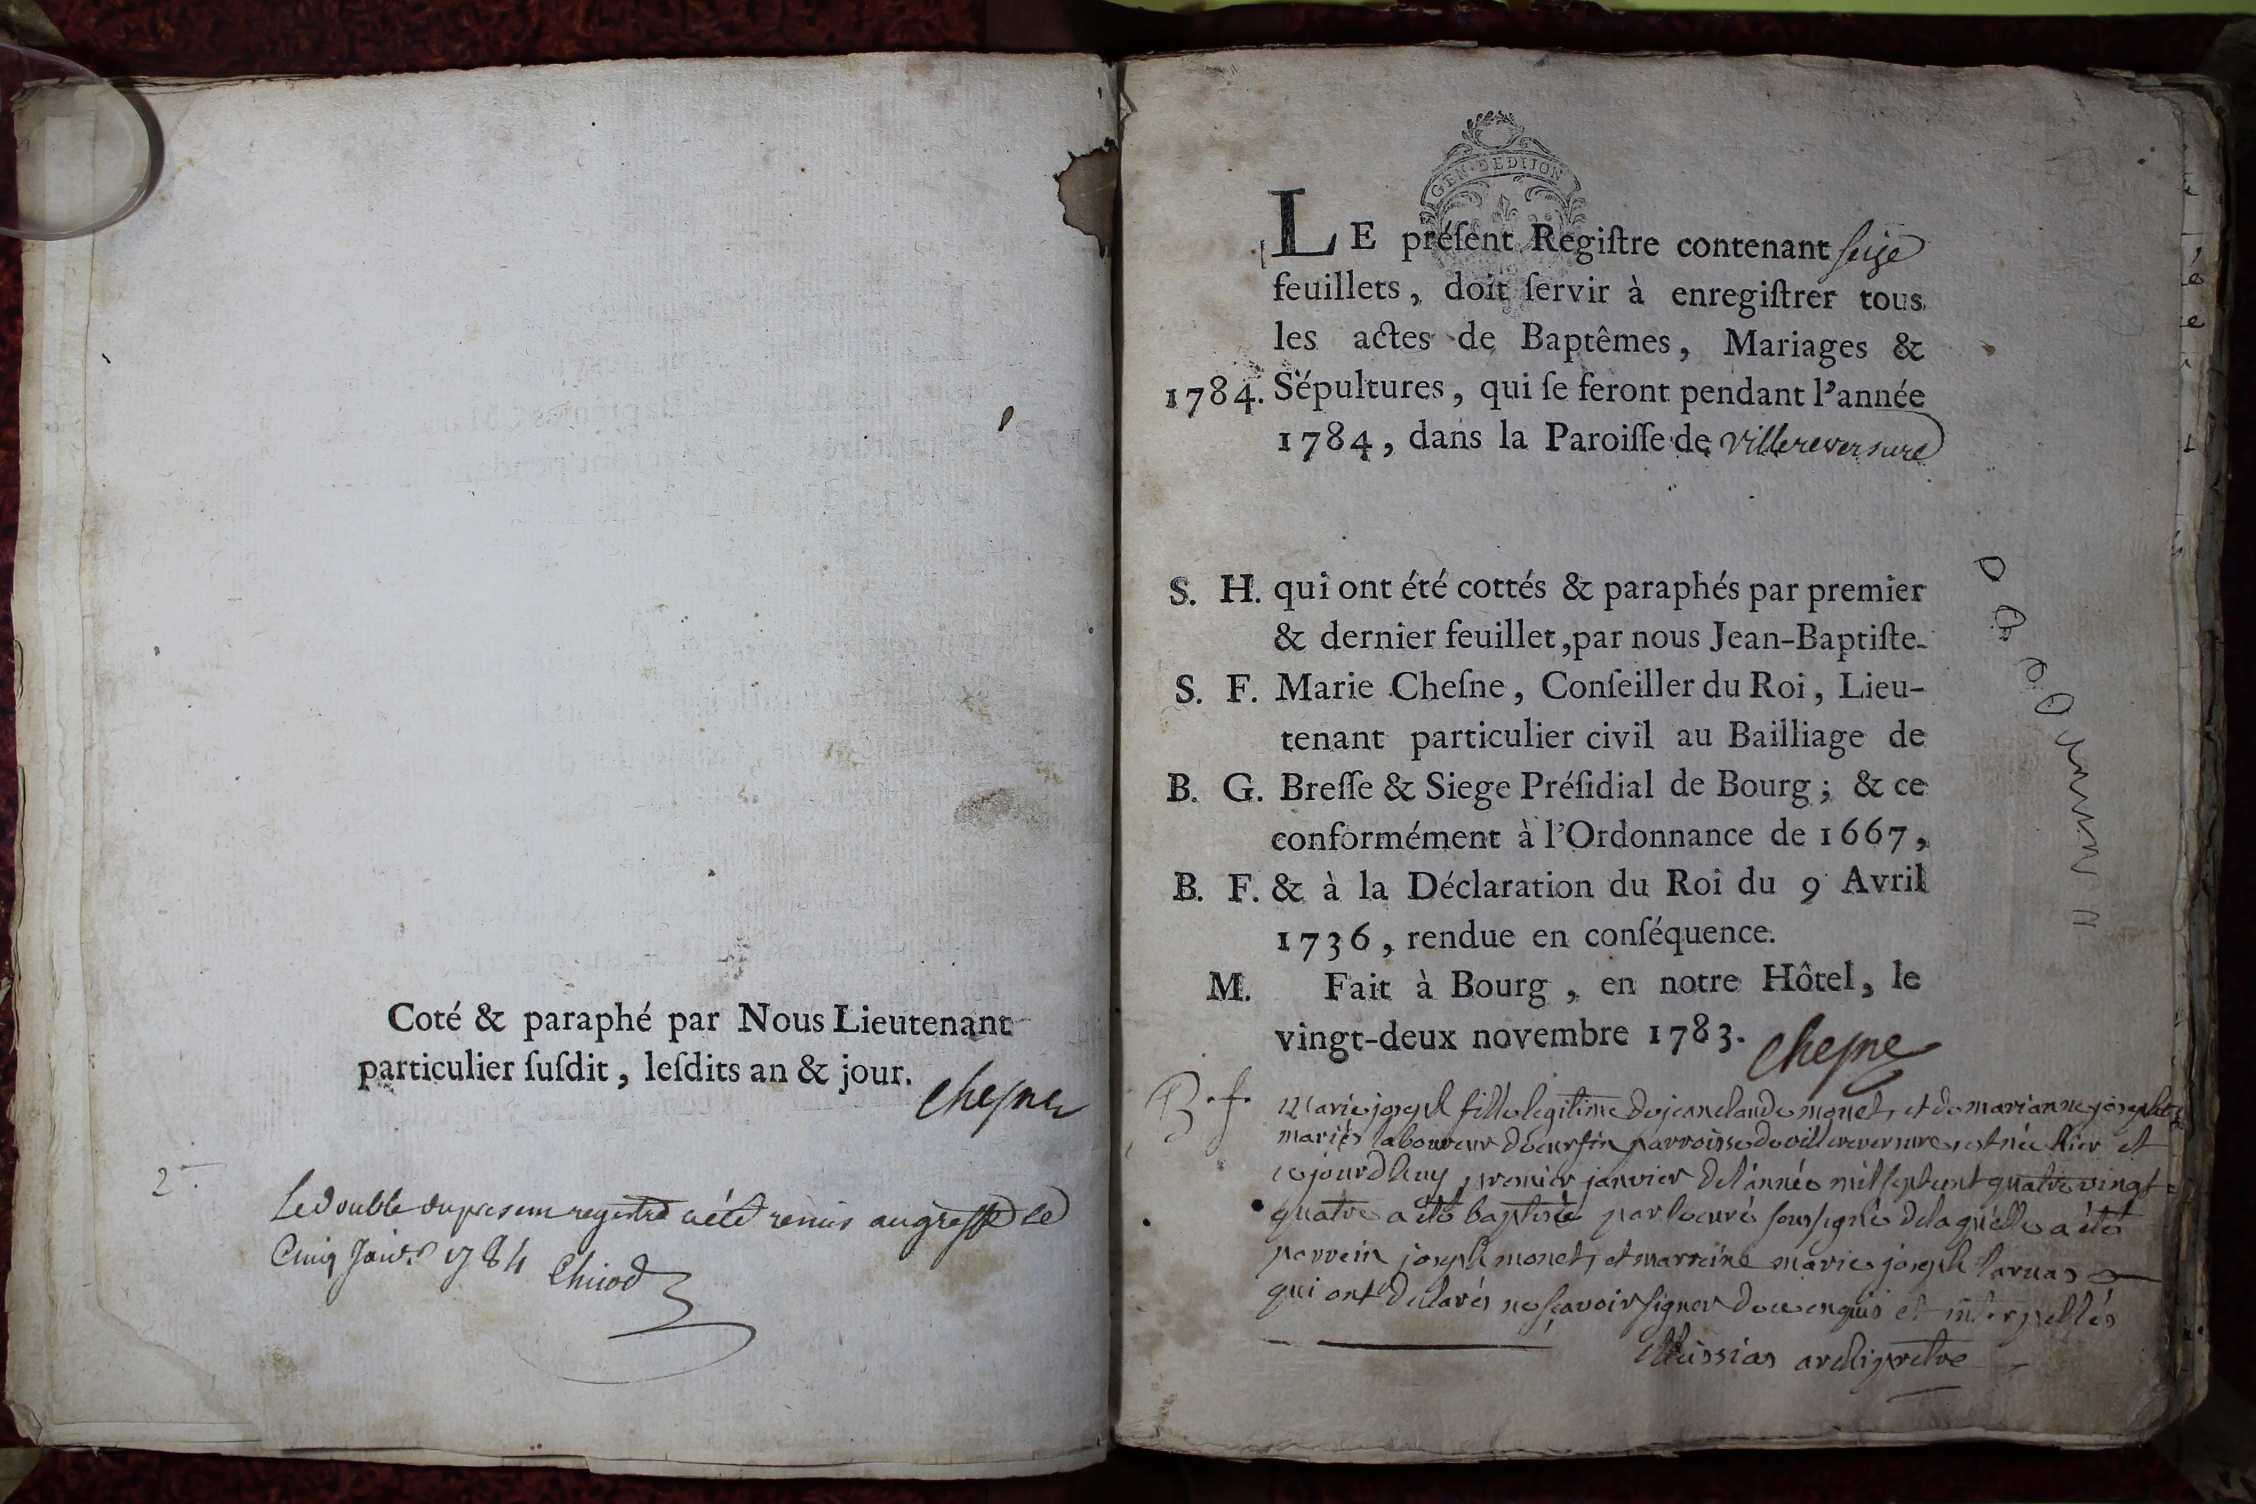 Coté & paraphé par Nous Lieutenant
particulier ſuſdit, leſdits an & jour.
Cheſne
2
Le double du present registre a été remis au greffe le
Cinq Janv. 1784 Chicod
GEN·DE DIJON
LE préſent Regiſtre contenant seize
feuillets, doit ſervir à enregiſtrer tous
les actes de Baptêmes, Mariages &
1784. Sépultures, qui ſe feront pendant l'année
1784, dans la Paroiſſe de villereversure
S. H. qui ont été cottés & paraphés par premier
& dernier feuillet, par nous Jean-Baptiſte-
S. F. Marie Cheſne, Conſeiller du Roi, Lieu-
tenant particulier civil au Bailliage de
B. G. Breſſe & Siege Préſidial de Bourg; & ce
conformément à l'Ordonnance de 1667,
B. F. & à la Déclaration du Roi du 9 Avril
1736, rendue en conſéquence.
M. Fait à Bourg, en notre Hôtel, le
vingt-deux novembre 1783. Cheſne
B. f. Marie joseph fille legitime de jean claude monet, et de marianne
mariés laboureur parroisse de villereversure, est née hier et
cejourdhuy premier janvier de l'année mil sept cent quatre vingt
quatre a été baptisée par le curé soussigné de laquelle a été
parrein joseph monet, et marreine marie joseph
qui ont declarés ne sçavoir signer de ce enquis et interpellés
archiprêtre